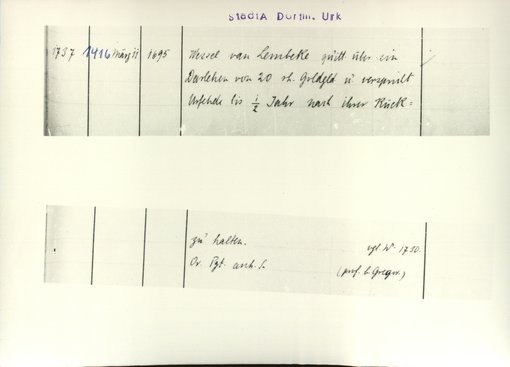 Stadta Dortm. Urk
1737 1416 März 11 1695 Wessel van Lembeke quitt über ein
Darlehen von 20 rh. Goldgld u verspricht
Urfehde bis 1/2 Jahr nach ihrer Rück=
zu halten. vgl. Nr 1750.
Or. Pgt. anh. S. (prof. b. Gregor.)